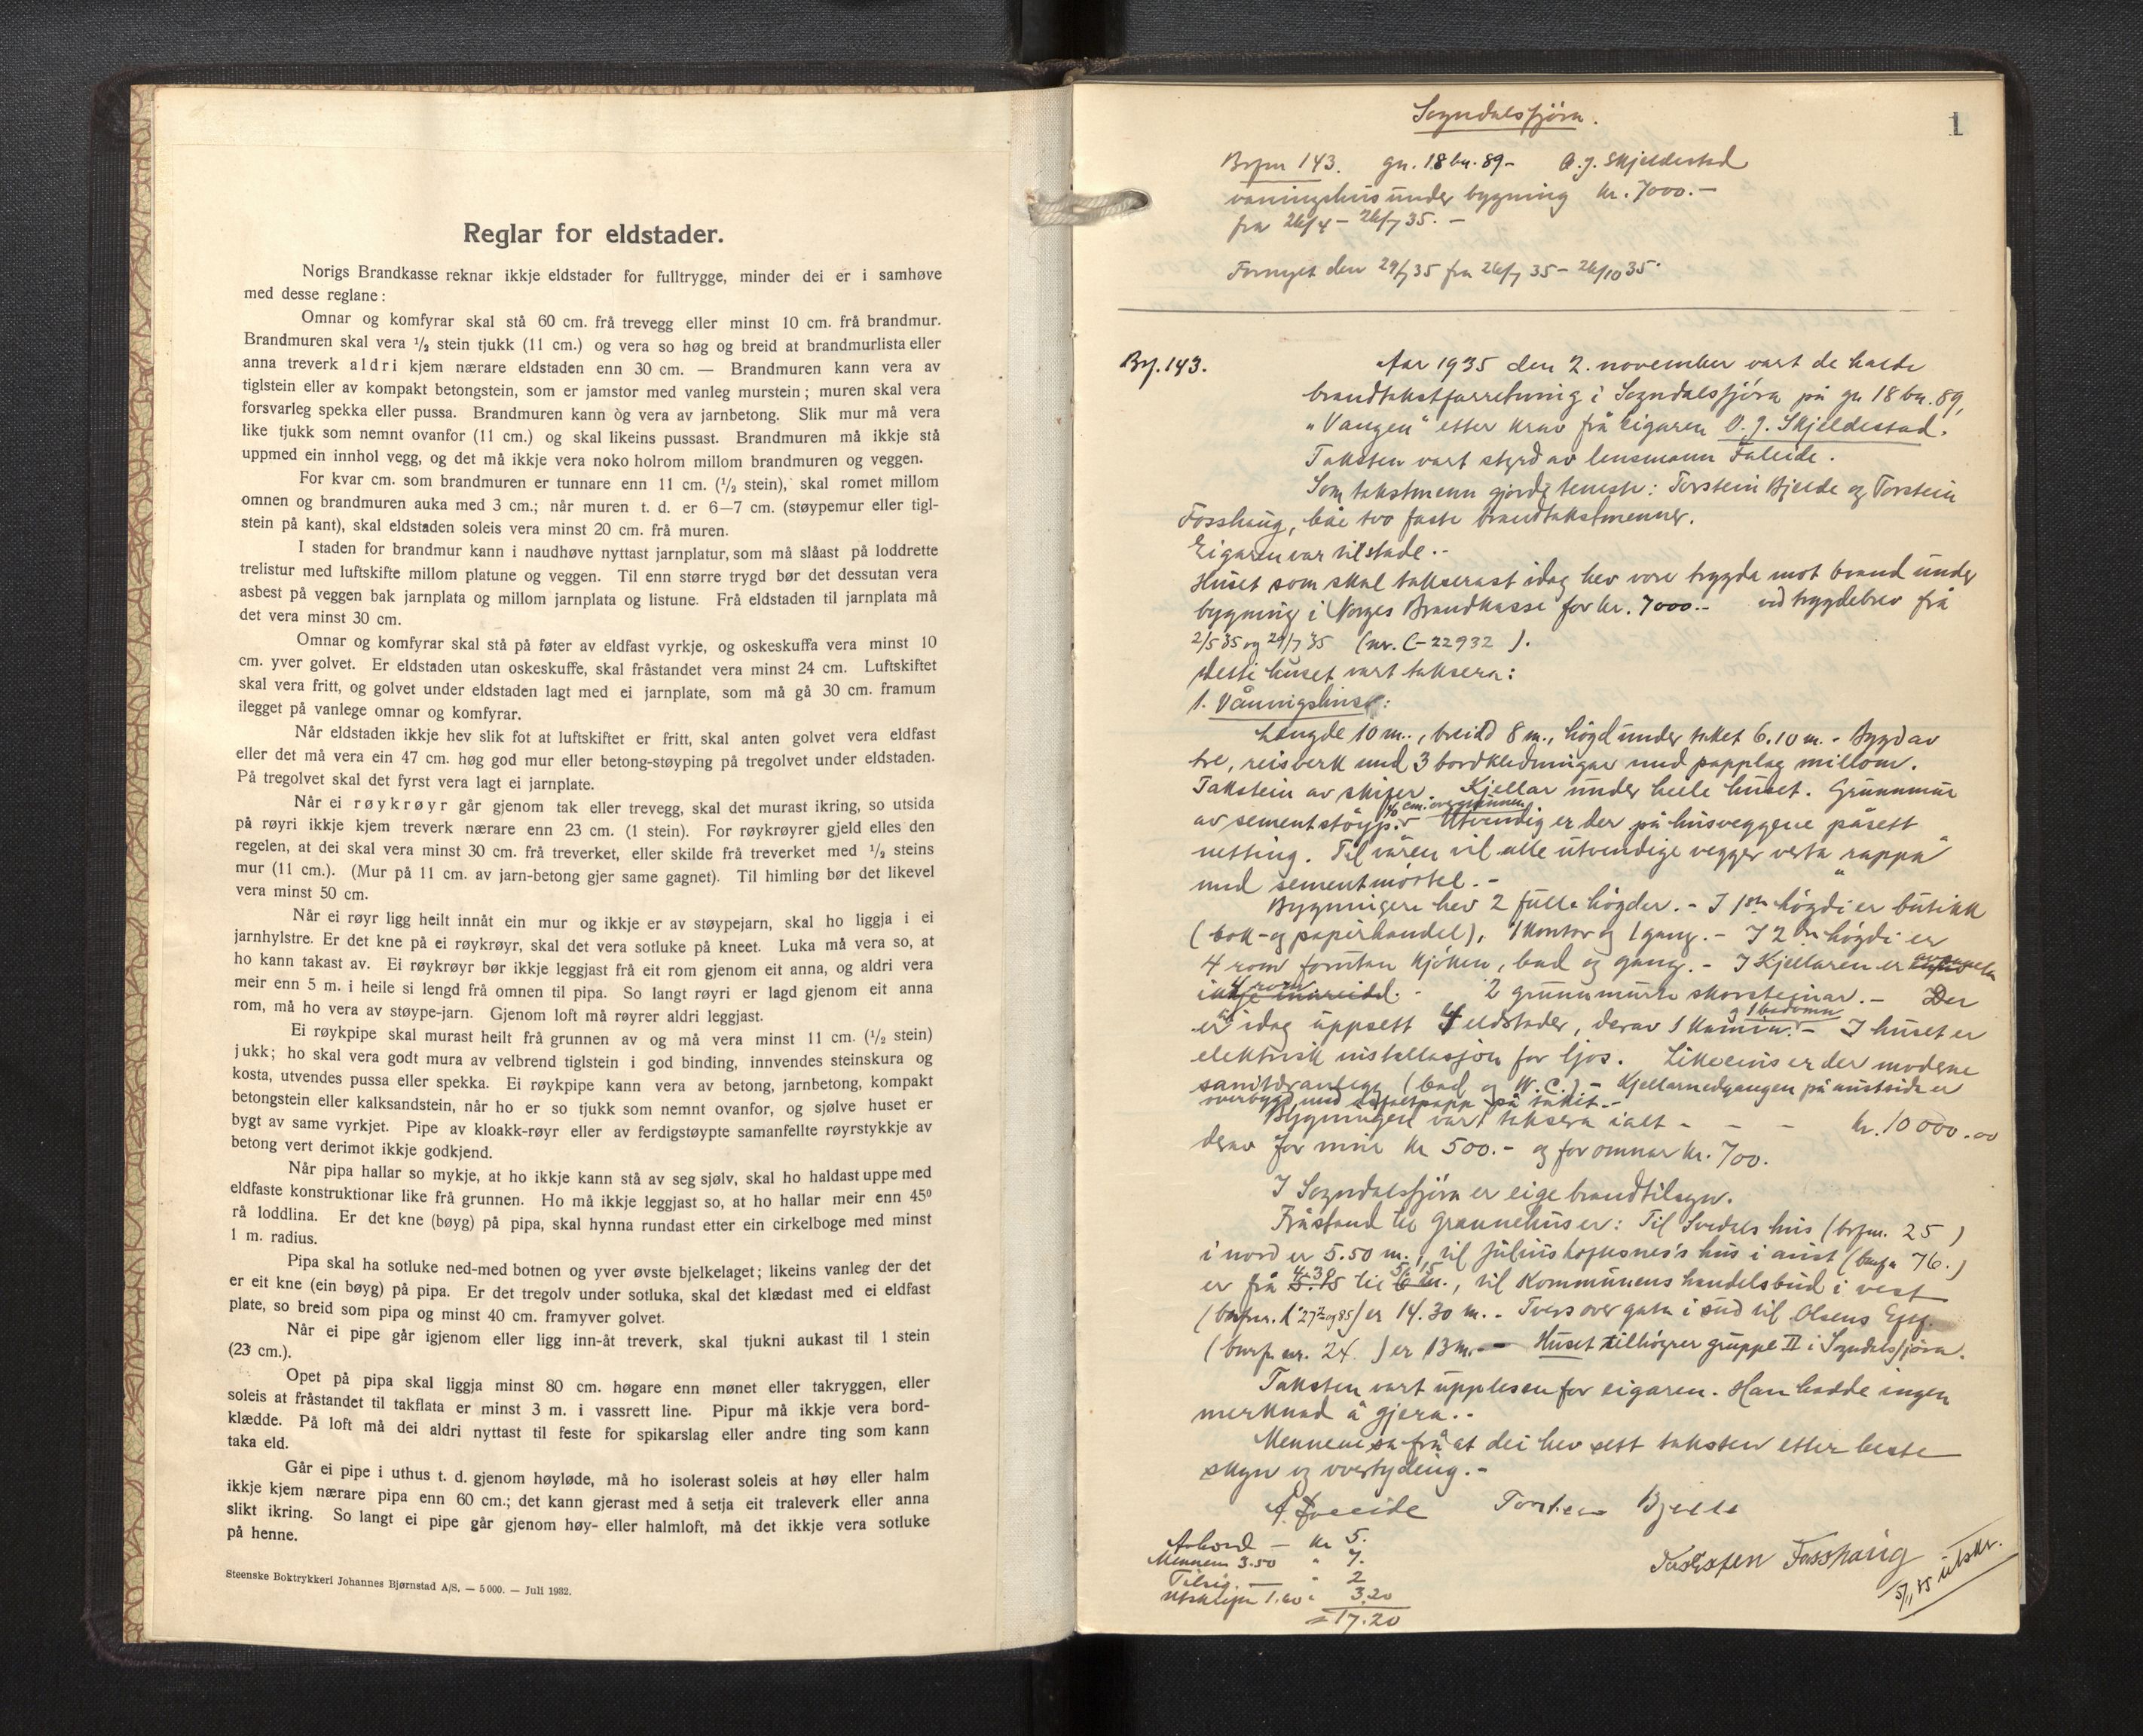 Reglar for eldstader.
Norigs Brandkasse reknar ikkje eldstader for fulltrygge, minder dei er i samhøve
med desse reglane:
Omnar og komfyrar skal stå 60 cm. frå trevegg eller minst 10 cm. frå brandmur.
Brandmuren skal vera ½ stein tjukk (11 cm.) og vera so høg og breid at brandmurlista eller
anna treverk aldri kjem nærare eldstaden enn 30 cm. — Brandmuren kann vera av
tiglstein eller av kompakt betongstein, som er jamstor med vanleg murstein; muren skal vera
forsvarleg spekka eller pussa. Brandmuren kann òg vera av jarnbetong. Slik mur må vera
like tjukk som nemnt ovanfor (11 cm.) og skal likeins pussast. Brandmuren må ikkje stå
uppmed ein innhol vegg, og det må ikkje vera noko holrom millom brandmuren og veggen.
For kvar cm. som brandmuren er tunnare enn 11 cm. (½ stein), skal romet millom
omnen og brandmuren auka med 3 cm.; når muren t. d. er 6—7 cm. (støypemur eller tigl-
stein på kant), skal eldstaden soleis vera minst 20 cm. frå muren.
I staden for brandmur kann i naudhøve nyttast jarnplatur, som må slåast på loddrette
trelistur med luftskifte millom platune og veggen. Til enn større trygd bør det dessutan vera
asbest på veggen bak jarnplata og millom jarnplata og listune. Frå eldstaden til jarnplata må
det vera minst 30 cm.
Omnar og komfyrar skal stå på føter av eldfast vyrkje, og oskeskuffa vera minst 10
cm. yver golvet. Er eldstaden utan oskeskuffe, skal fråstandet vera minst 24 cm. Luftskiftet
skal vera fritt, og golvet under eldstaden lagt med ei jarnplate, som må gå 30 cm. framum
ilegget på vanlege omnar og komfyrar.
Når eldstaden ikkje hev slik fot at luftskiftet er fritt, skal anten golvet vera eldfast
eller det må vera ein 47 cm. høg god mur eller betong-støyping på tregolvet under eldstaden.
På tregolvet skal det fyrst vera lagt ei jarnplate.
Når ei røykrøyr går gjenom tak eller trevegg, skal det murast ikring, so utsida
på røyri ikkje kjem treverk nærare enn 23 cm. (1 stein). For røykrøyrer gjeld elles den
regelen, at dei skal vera minst 30 cm. frå treverket, eller skilde frå treverket med ½ steins
mur (11 cm.). (Mur på 11 cm. av jarn-betong gjer same gagnet). Til himling bør det likevel
vera minst 50 cm.
Når ei røyr ligg heilt innåt ein mur og ikkje er av støypejarn, skal ho liggja i ei
jarnhylstre. Er det kne på ei røykrøyr, skal det vera sotluke på kneet. Luka må vera so, at
ho kann takast av. Ei røykrøyr bør ikkje leggjast frå eit rom gjenom eit anna, og aldri vera
meir enn 5 m. i heile si lengd frå omnen til pipa. So langt røyri er lagd gjenom eit anna
rom, må ho vera av støype-jarn. Gjenom loft må røyrer aldri leggjast.
Ei røykpipe skal murast heilt frå grunnen av og må vera minst 11 cm. (½ stein)
jukk; ho skal vera godt mura av velbrend tiglstein i god binding, innvendes steinskura og
kosta, utvendes pussa eller spekka. Ei røykpipe kann vera av betong, jarnbetong, kompakt
betongstein eller kalksandstein, når ho er so tjukk som nemnt ovanfor, og sjølve huset er
bygt av same vyrkjet. Pipe av kloakk-røyr eller av ferdigstøypte samanfellte røyrstykkje av
betong vert derimot ikkje godkjend.
Når pipa hallar so mykje, at ho ikkje kann stå av seg sjølv, skal ho haldast uppe med
eldfaste konstruktionar like frå grunnen. Ho må ikkje leggjast so, at ho hallar meir enn 45⁰
rå loddlina. Er det kne (bøyg) på pipa, skal hynna rundast etter ein cirkelboge med minst
1 m. radius.
Pipa skal ha sotluke ned-med botnen og yver øvste bjelkelaget; likeins vanleg der det
er eit kne (ein bøyg) på pipa. Er det tregolv under sotluka, skal det klædast med ei eldfast
plate, so breid som pipa og minst 40 cm. framyver golvet.
Når ei pipe går igjenom eller ligg inn-åt treverk, skal tjukni aukast til 1 stein
(23 cm.).
Opet på pipa skal liggja minst 80 cm. høgare enn mønet eller takryggen, eller
soleis at fråstandet til takflata er minst 3 m. i vassrett line. Pipur må ikkje vera bord-
klædde. På loft må dei aldri nyttast til feste for spikarslag eller andre ting som kann
taka eld.
Går ei pipe i uthus t. d. gjenom høyløde, må ho isolerast soleis at høy eller halm
ikkje kjem nærare pipa enn 60 cm.; det kann gjerast med å setja eit traleverk eller anna
slikt ikring. So langt ei pipe går gjenom høy- eller halmloft, må det ikkje vera sotluke
på henne.
Steenske Boktrykkeri Johannes Bjørnstad A/S. — 5000. — Juli 1932.
1
Sogndalsfjøra.
Brfnr 143. gn. 18 bn. 89- O. J. Skjeldestad
våningshus under bygning kr. 7000.-
fra 26/4 - 26/7 35. -
Fornyet den 29/7 35 fra 26/7 35 - 26/10 35.
By. 143.
Aar 1935 den 2. november vart de halde
brandtakstforretning i Sogndalsfjøra på gn 18 bn. 89,
"Vangen" etter krav frå eigaren O. J. Skjeldestad.
Taksten vart styrd av lensmann Faleide.
Som takstmenn gjorde teneste: Torstein Bjelde og Torstein
Fosshaug, båe tvo faste brandtakstmenner.
Eigaren var tilstade.-
Huset som skal takserast idag hev vore trygda mot brand under
bygning i Norges Brandkasse for kr. 7000.- ved trygdebrev frå
2/5 35 og 29/7 35 (nr. C-22932 ).
Dette huset vart taksera:
1. Våningshus:
Lengde 10 m., breidd 8 m., högd under taket 6.10 m. - Bygd av
tre, reisverk med 3 bordkledningar med papplag millom.
Takstein av skifer. Kjellar under heile huset. Grunnmur
av sementstöyp. Utvendig er der på husveggene påsett
netting. Til våren vil alle utvendige vegger verta "rappa"
med sementmörtel. -
Bygningen hev 2 fulle högder. - I 1ste högdi er butikk
(bok- og papirhandel), 1 kontor og 1 gang. - I 2dre högdi er
4 rom foruten kjöken, bad og gang. - I Kjellaren er
4 rom
ikkje innreidd. - 2 grunnmurte skorsteinar. - Der
og 1 badomn
er idag uppsett eldstader, derav 1 kamin. - I huset er
elektrisk installasjon for ljos. Likeeins er der moderne
sanitæranlegg (bad og W.C.) - Kjellarnedgangen på austsida er
overbygd med asfaltpapp på taket. -
Bygningen vart taksera ialt - - - kr. 10 000.00
derav for mur kr 500.- og for omnar kr. 700.
I Sogndalsfjöra er eige brandtilsyn.
Fråstand til grannehuser: Til Svedels hus (brfnr. 25 )
i nord er 5.50 m., til Julius hus i aust (brnfr 76.)
er frå til m., til Kommunens handelsbud i vest
er 14.30 m. - Tvers over gata i sud til Olsens
( nr. 24 ) er 13 m. - Huset tilhögrer gruppe II i Sogndalsfjöra.
Taksten vart upplesen for eigaren. Han hadde ingen
merknad å gjera. -
Mennene sa frå at dei hev sett taksten etter beste
skyn og overtyding. -
A. Faleide Torstein Bjelde
Torstein Fosshaug
5/11 35 utskr.
Arbord - kr 5.
Mennene 3.50 " 7.
Tilsig. - " 2
Utskrift 1.60 " 3.20
= 17.20